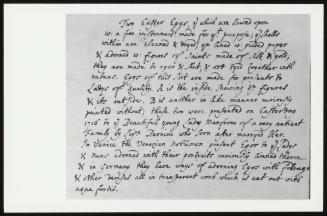 Two Easter Eggs, yᵉ which are sawed open
wᵗʰ a fine instrument made for yᵗ purpose; yᵉ shells
within are cleaned & dryed, yⁿ lined wᵗʰ gilded paper
& adorned wᵗʰ figures of Saints made of silk & gold;
they are made to open & shut, & are tyed together with
ribans. Eggs of this sort are made for presents to
Ladys of Quality. A is the inside, shewing yᵉ figures
& its outside. B is another in like manner curiously
painted without: these two were presented on Easter Day
1716 to yᵉ Beautyfull young Lady Manfroni of a very antient
Family by Sigʳ Bernini who soon after married Her.
In Venice the Venetian noblemen present Eggs to yᵉ Ladys
& Nuns adorned with their portraits curiously limned thereon.
& in Germany they have ways of adorning Eggs with foliage
& other devises all in transparent work which is eat out with
aqua fortis.